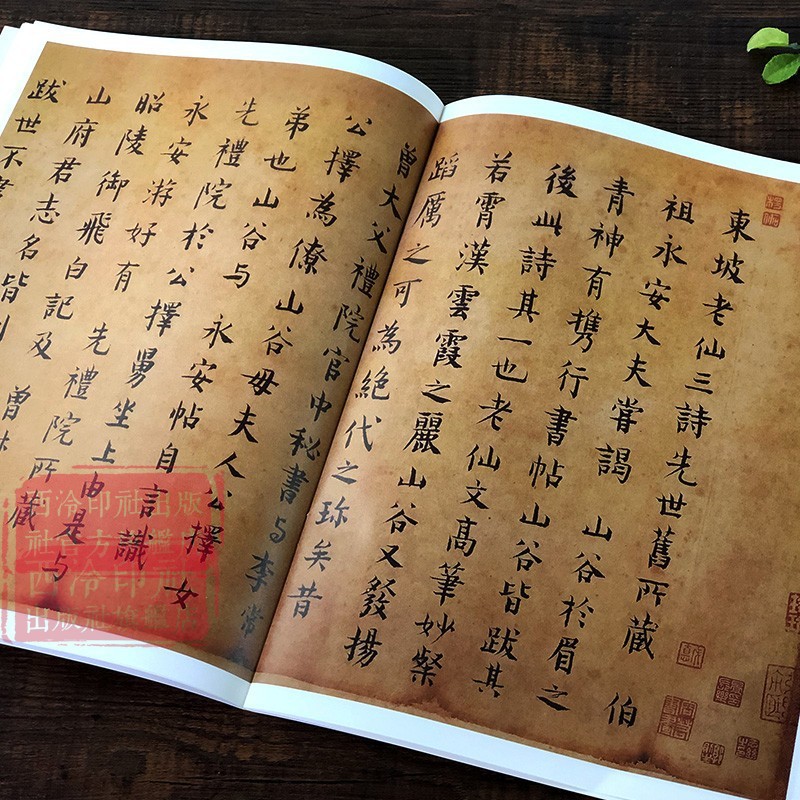 東坡老仙三詩先世舊所藏 伯
祖永安大夫嘗謁 山谷於眉之
青神有攜行書帖山谷皆跋其
後此詩其一也老仙文高筆妙粲
若霄漢雲霞之麗山谷又發揚
蹈厲之可為絕代之珍矣昔
曾大父禮院官中秘書與李常
公擇為僚山谷母夫人公擇女
弟也山谷與 永安帖自言識
先禮院於公擇舅坐上由是與
永安游好有 先禮院所藏
昭陵御飛白記及 曾
山府君志名皆
跋世不
西泠印社出版
社官方旗艦店
西泠印社
出版社旗艦店